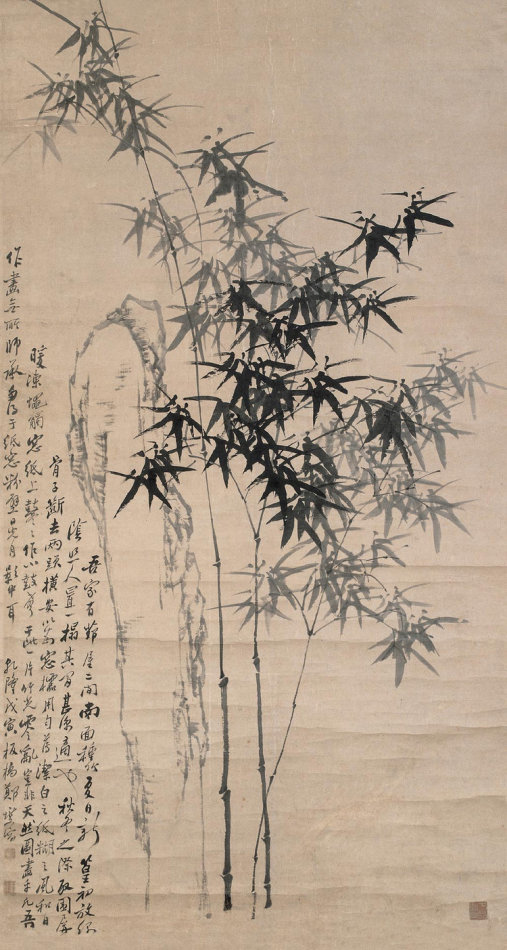 吾家有茆屋二間南面種竹夏日新篁初放綠
陰照人置一榻其中甚涼適也秋冬之際取圍屏
骨子斷去兩頭橫安以為窓櫺用勻薄潔白之紙糊之風和日
暖凍蠅觸窓紙上鼕〻作小鼓聲于此一片竹光零亂豈非天然圖畫乎凡吾
作畫無所師承多得于紙窓粉壁日光月影中耳 乾隆戊寅板橋鄭燮